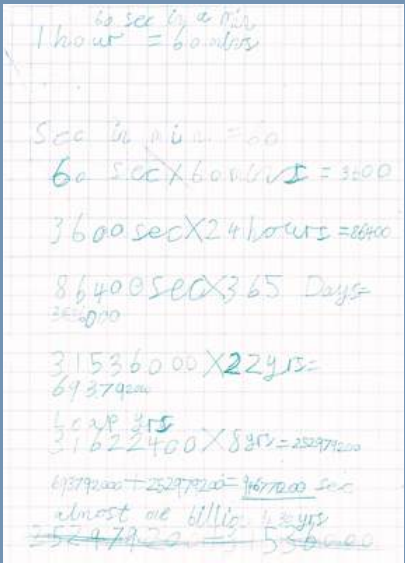 60 sec in a min
1 hour = 60 mins
Sec in min = 60
60 sec X 60 mins = 3600
3600 sec X 24 hours = 86400
86400 sec X 365 Days =
31536000 X 22 yrs =
693792000
Leap yrs
31622400 X 8 yrs = 252979200
693792000 + 252979200 = 946771200 sec
almost one billion 30 yrs